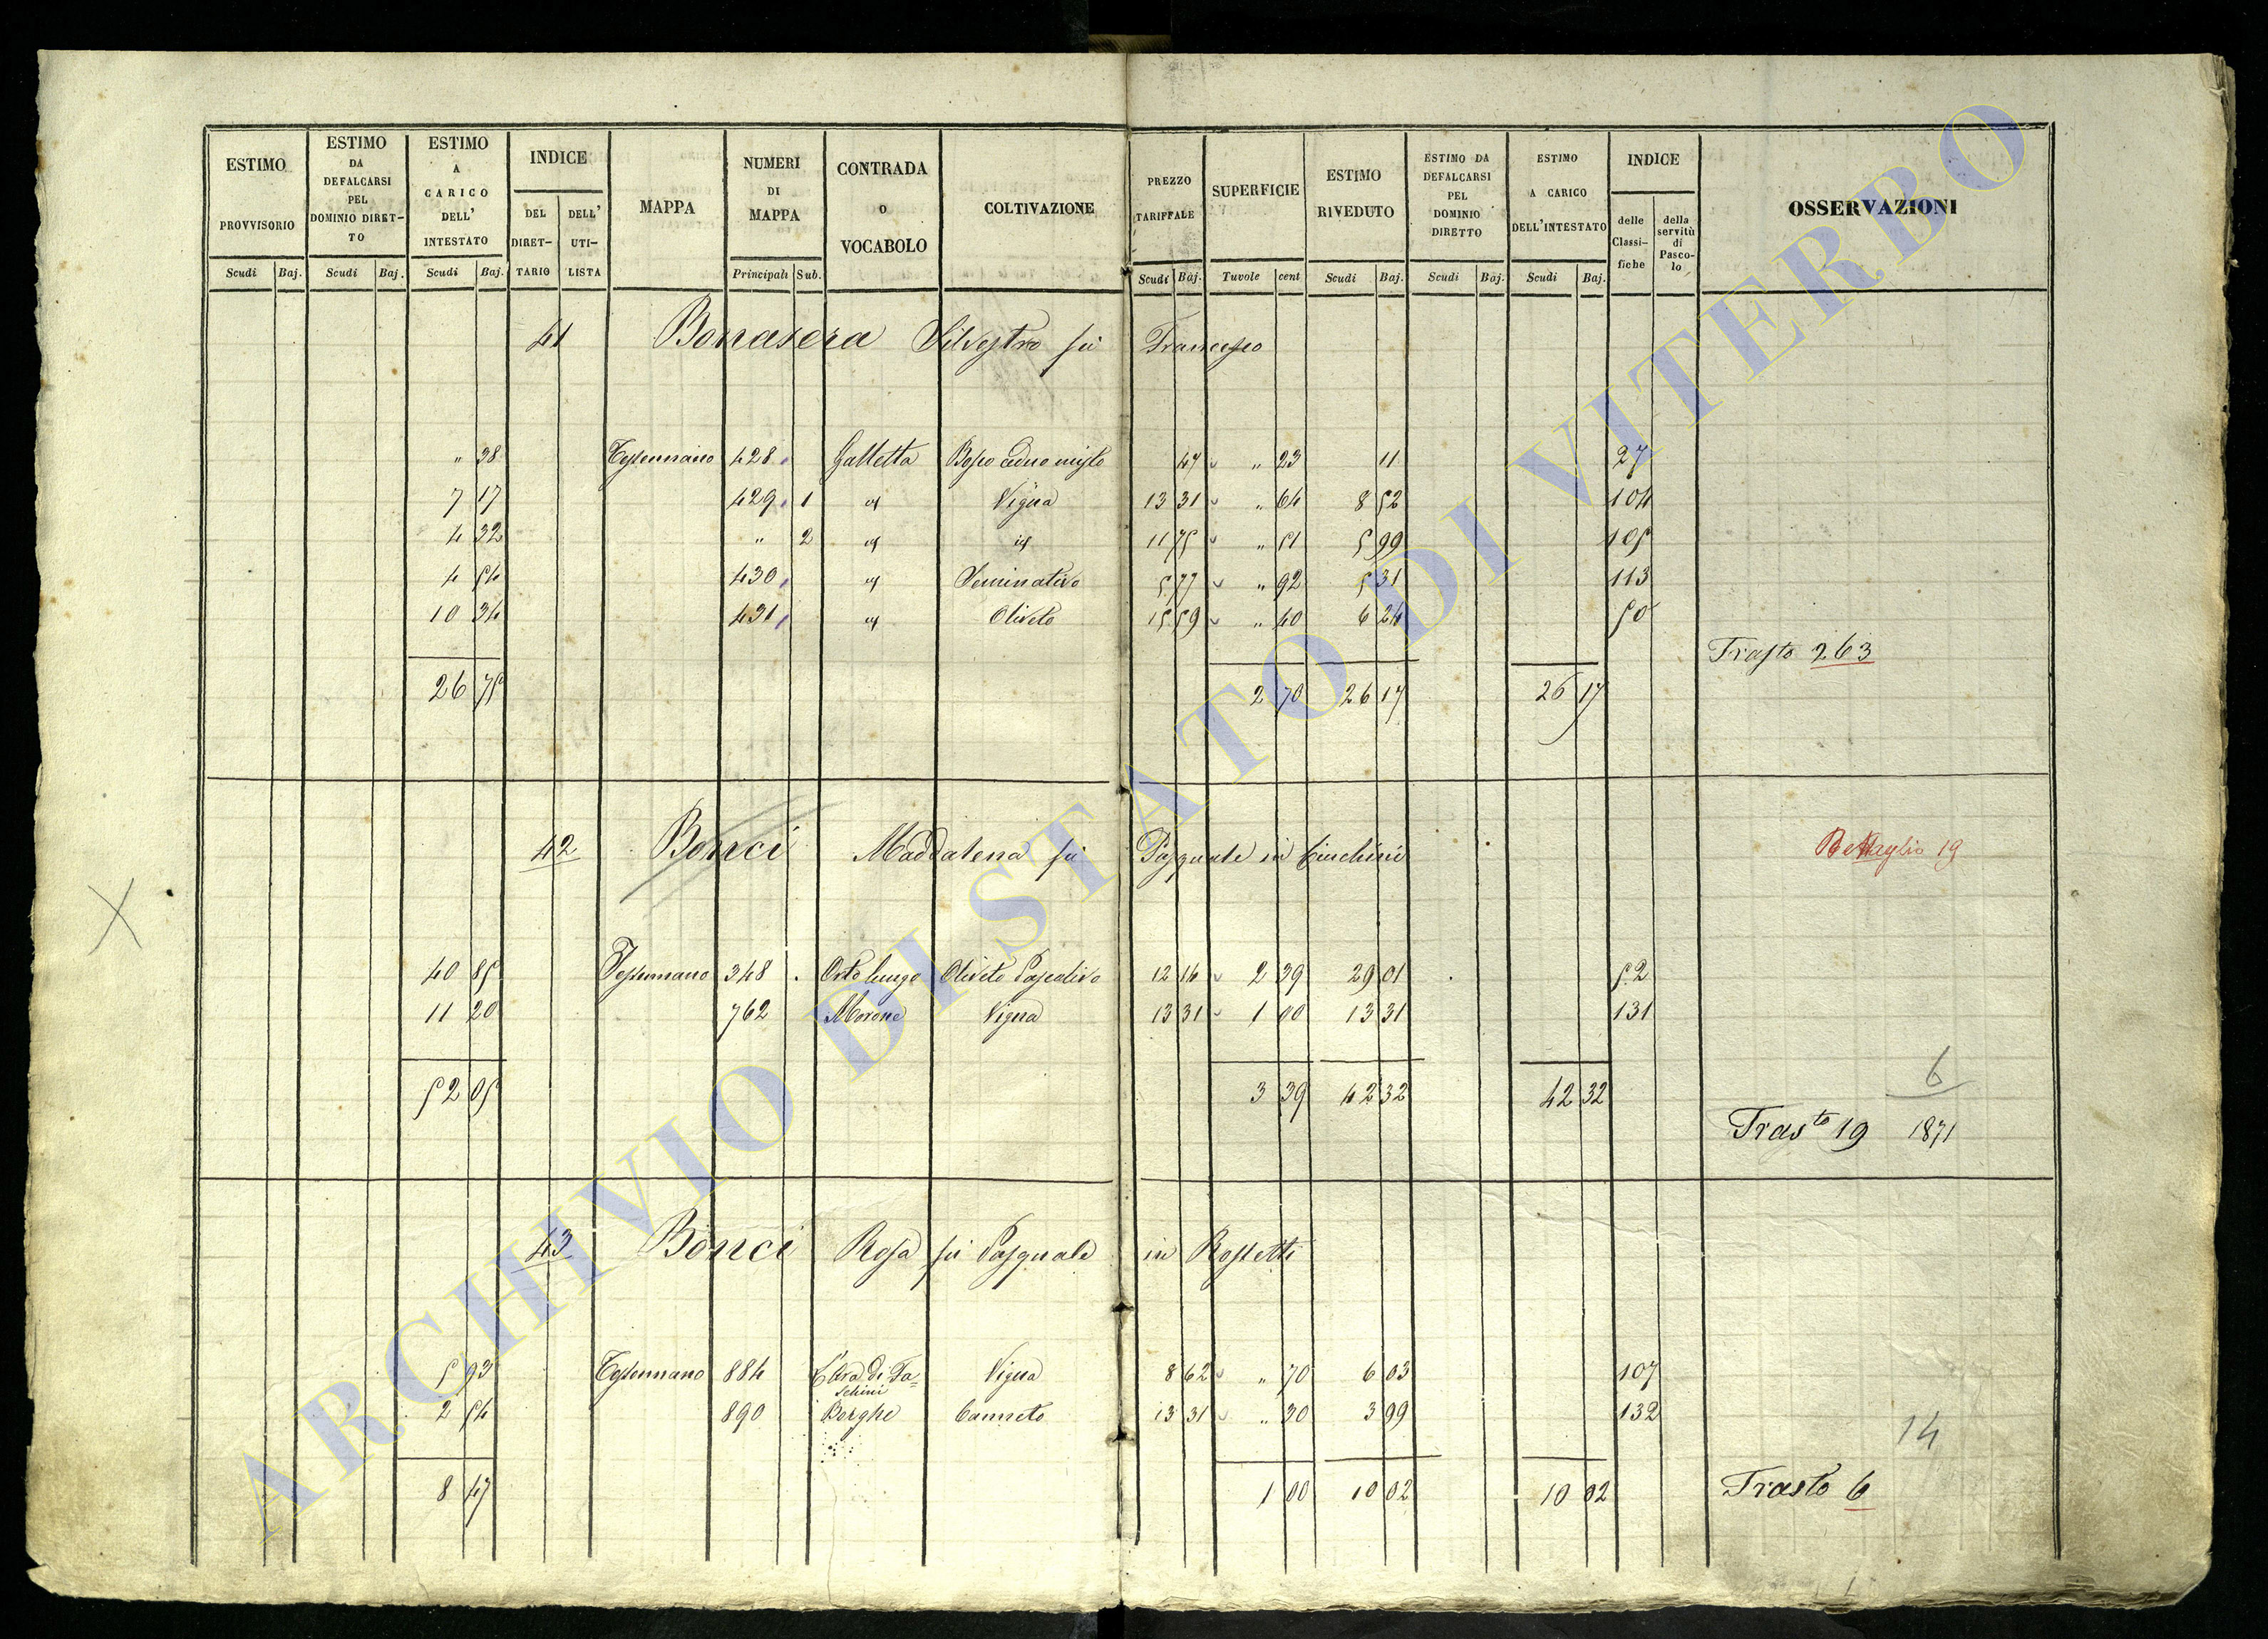 ESTIMO PROVVISORIO | ESTIMO DA DEFALCARSI PEL DOMINIO DIRET-TO | ESTIMO A CARICO DELL' INTESTATO | INDICE DEL DIRET-TARIO | DELL' UTI-LISTA | MAPPA | NUMERI DI MAPPA | CONTRADA O VOCABOLO | COLTIVAZIONE | PREZZO TARIFFALE | SUPERFICIE | ESTIMO RIVEDUTO | ESTIMO DA DEFALCARSI PEL DOMINIO DIRETTO | ESTIMO A CARICO DELL'INTESTATO | INDICE delle Classi-fiche | della servitù di Pasco-lo | OSSERVAZIONI
Scudi Baj. Scudi Baj. Scudi Baj. Principali Sub. Scudi Baj. Tavole cent Scudi Baj. Scudi Baj. Scudi Baj.
41 Bonasera Silvestro fù Francesco
" 38 Tessennano 428 Galletta Bosco ceduo misto 47 " 23 11 27
7 17 429 1 id Vigna 13 31 " 64 8 52 104
4 32 " 2 id id 11 75 " 51 5 99 105
4 54 430 id Seminativo 5 77 " 92 5 31 113
10 34 431 id Oliveto 15 59 " 40 6 24 50
Trasto 263
26 75 2 70 26 17 26 17
42 Bonci Maddalena fù Pasquale in Ciucchini Bettaglio 19
X
40 85 Tessennano 348 Orto lungo Oliveto Pascolivo 12 14 2 39 29 01 52
11 20 762 Morone Vigna 13 31 1 00 13 31 131
6
52 05 3 39 42 32 42 32
Trasto 19 1871
43 Bonci Rosa fù Pasquale in Rossetti
5 93 Tessennano 884 L'Ara di Fa=schini Vigna 8 62 " 70 6 03 107
2 54 890 Borghe Canneto 13 31 " 30 3 99 132
14
8 47 1 00 10 02 10 02 Trasto 6
ARCHIVIO DI STATO DI VITERBO